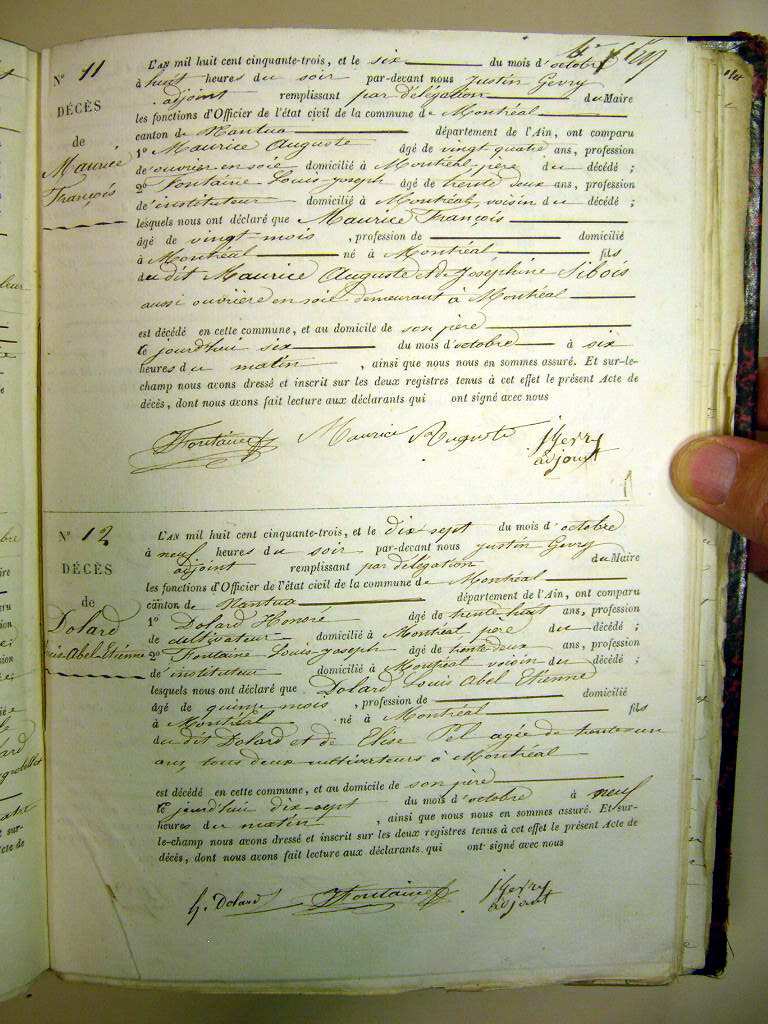 N° 11
DÉCÈS
de
Maurice
François
L'AN mil huit cent cinquante-trois, et le six du mois d'octobre
à huit heures du soir par-devant nous Justin Gevry
adjoint remplissant par délégation du Maire
les fonctions d'Officier de l'état civil de la commune de Montréal
canton de Nantua département de l'Ain, ont comparu
1° Maurice Auguste âgé de vingt quatre ans, profession
de ouvrier en soie domicilié à Montréal père du décédé ;
2° Fontaine Louis-joseph âgé de trente deux ans, profession
de instituteur domicilié à Montréal, voisin du décédé ;
lesquels nous ont déclaré que Maurice François
âgé de vingt mois , profession de domicilié
à Montréal né à Montréal fils
du dit Maurice Auguste et de Joséphine Sibois
aussi ouvrière en soie demeurant à Montréal
est décédé en cette commune, et au domicile de son père
le jourd'hui six du mois d'octobre à six
heures du matin , ainsi que nous nous en sommes assuré. Et sur-le-
champ nous avons dressé et inscrit sur les deux registres tenus à cet effet le présent Acte de
décès, dont nous avons fait lecture aux déclarants qui ont signé avec nous
Fontaine Maurice Auguste J Gevry
adjoint
N° 12
DÉCÈS
de
Dolard
Louis-Abel-Etienne
L'AN mil huit cent cinquante-trois, et le dix sept du mois d'octobre
à neuf heures du soir par-devant nous Justin Gevry
adjoint remplissant par délégation du Maire
les fonctions d'Officier de l'état civil de la commune de Montréal
canton de Nantua département de l'Ain, ont comparu
1° Dolard Honoré âgé de trente huit ans, profession
de cultivateur domicilié à Montréal père du décédé ;
2° Fontaine Louis-joseph âgé de trente deux ans, profession
de instituteur domicilié à Montréal voisin du décédé ;
lesquels nous ont déclaré que Dolard Louis Abel Etienne
âgé de quinze mois , profession de domicilié
à Montréal né à Montréal fils
du dit Dolard et de Elise Pel agée de trente un
ans, tous deux cultivateurs à Montréal
est décédé en cette commune, et au domicile de son père
le jourd'hui dix-sept du mois d'octobre à neuf
heures du matin , ainsi que nous nous en sommes assuré. Et sur-
le-champ nous avons dressé et inscrit sur les deux registres tenus à cet effet le présent Acte de
décès, dont nous avons fait lecture aux déclarants qui ont signé avec nous
h. Dolard Fontaine J Gevry
adjoint